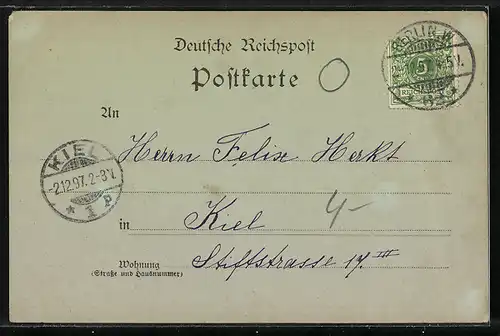 Deutsche Reichspost
Postkarte
BERLIN, W.
5
An
Herrn Felix Herkt
KIEL
-2.12.97.2-3V.
* 1 P
in Kiel
4-
Stiftstrasse 17 III
Wohnung
(Straße und Hausnummer)